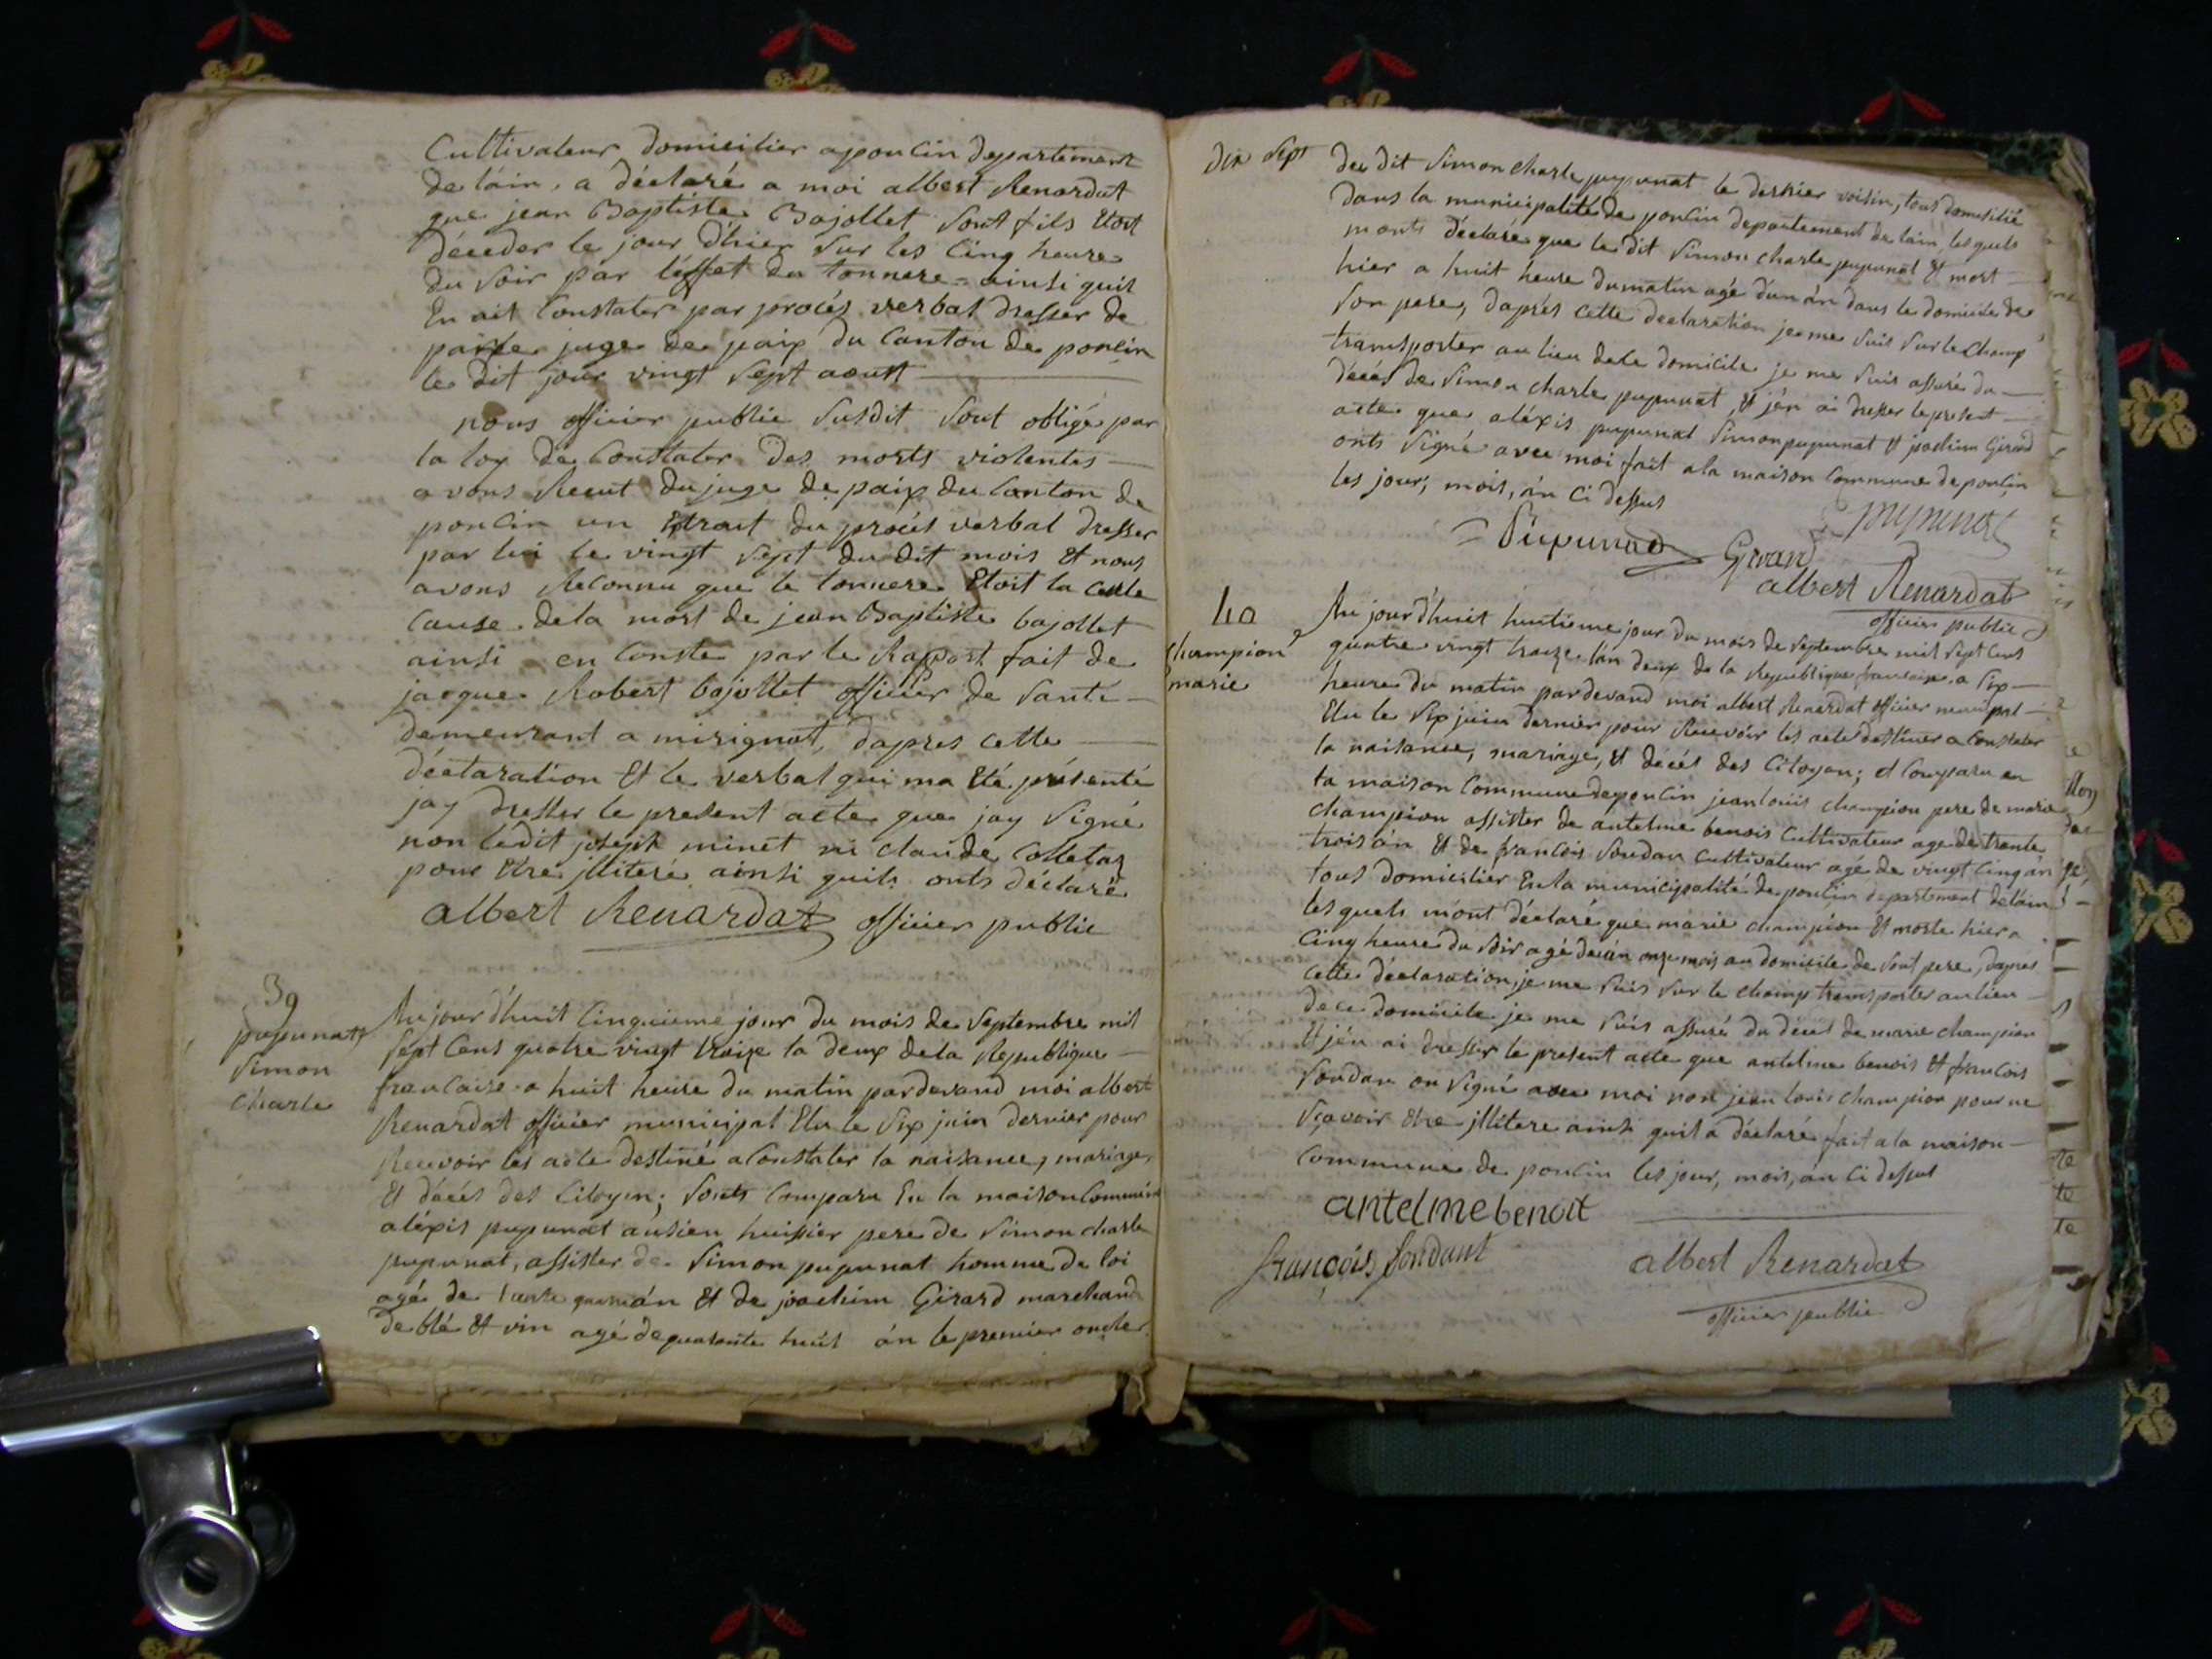 Cultivateur domicilier a poncin departement
de láin, a déclaré a moi albert Renardat
que jean Baptiste Bajollet sont fils Etoit
décéder le jour d'hier sur les Cinq heure
du soir par l'éffet du tonnere = ainsi quil
En ait Constater par procés verbal dresser de
par le juge de paix du Canton de poncin
le dit jour vingt sept aoust
nous officier public susdit sout obligé par
la loy de Constater des morts violentes
avons Recut du juge de paix du Canton de
poncin un Extrait du procés verbal dresser
par lui le vingt sept du dit mois Et nous
avons Reconnu que le tonnere Etoit la ceule
Cause de la mort de jean Baptiste bajollet
ainsi en Conste par le Rapport fait de
jacque Robert bajollet officier de santé
demeurant a mirignat, d'apres cette
déclaration Et le verbal qui ma Eté présenté
jay dresser le present acte que jay signé
non lédit joseph minet ni claude Colletaz
pour Etre jlliteré ainsi quils onts déclaré
albert Renardat officier public
39
pupunatt
simon
Charle
Aujourd'huit Cinquieme jour du mois de septembre mil
sept Cens quatre vingt treize la deux de la Republique
francaise a huit heure du matin pardevand moi albert
Renardat officier municipal Elu le six juin dernier pour
Recevoir les acte destiné a Constater la naisance, mariage,
Et décés des Citoyen; sonts Comparu En la maison Commune
aléxis pupunat ansien huissier pere de simon charle
pupunat, assister de simon pupunat homme de loi
agé de án Et de joachim Girard marchand
de blé Et vin agé de quarante huit án le premier oncle
dix sept
du dit simon charle pupunat le dernier voisin, tous domicilié
dans la municipalité de poncin departement de lain, lesquels
monts déclaré que le dit simon charle pupunat Et mort
hier a huit heure du matin agé d'un án dans le domicile de
son pere, daprés cette declaration je me suis sur le Champ
transporter au lieu de le domicile je me suis assuré du
décés de simon charle pupunat, Et jén ai dresser le present
acte que aléxis pupunat simon pupunat Et joachim Girard
onts signé avec moi fait a la maison Commune de poncin
les jour, mois, án Ci dessus
pupunat
Pupunat Girard
albert Renardat
officier public
40
Champion
marie
Aujourdhuit huitieme jour du mois de septembre mil sept Cens
quatre vingt treize lan deux de la Republique francaise, a six
heure du matin pardevand moi albert Renardat officier municipal
Elu le six juin dernier pour Recevoir les acte destiner a Constater
la naisance, mariage, Et décés des Citoyen; et Comparu en
la maison Commune de poncin jean louis champion pere de marie
champion assister de antelme benois Cultivateur age de trente
trois án Et de francois soudan Cultivateur agé de vingt Cinq án
tous domicilier En la municipalité de poncin departement de láin
lesquels m'ont déclaré que marie champion Et morte hier a
Cinq heure du soir agé de án onze mois au domicile de sont pere, dapres
cette déclaration, je me suis sur le champ transporter au lieu
de ce domicile je me suis assuré du décés de marie champion
Et jén ai dresser le present acte que antelme benois Et francois
soudan on signé avec moi non jean louis champion pour ne
sçavoir Etre jllitere ainsi quil a déclaré fait a la maison
Commune de poncin les jour, mois, án Ci dessus
antelme benoit
françois soudant
albert Renardat
officier public